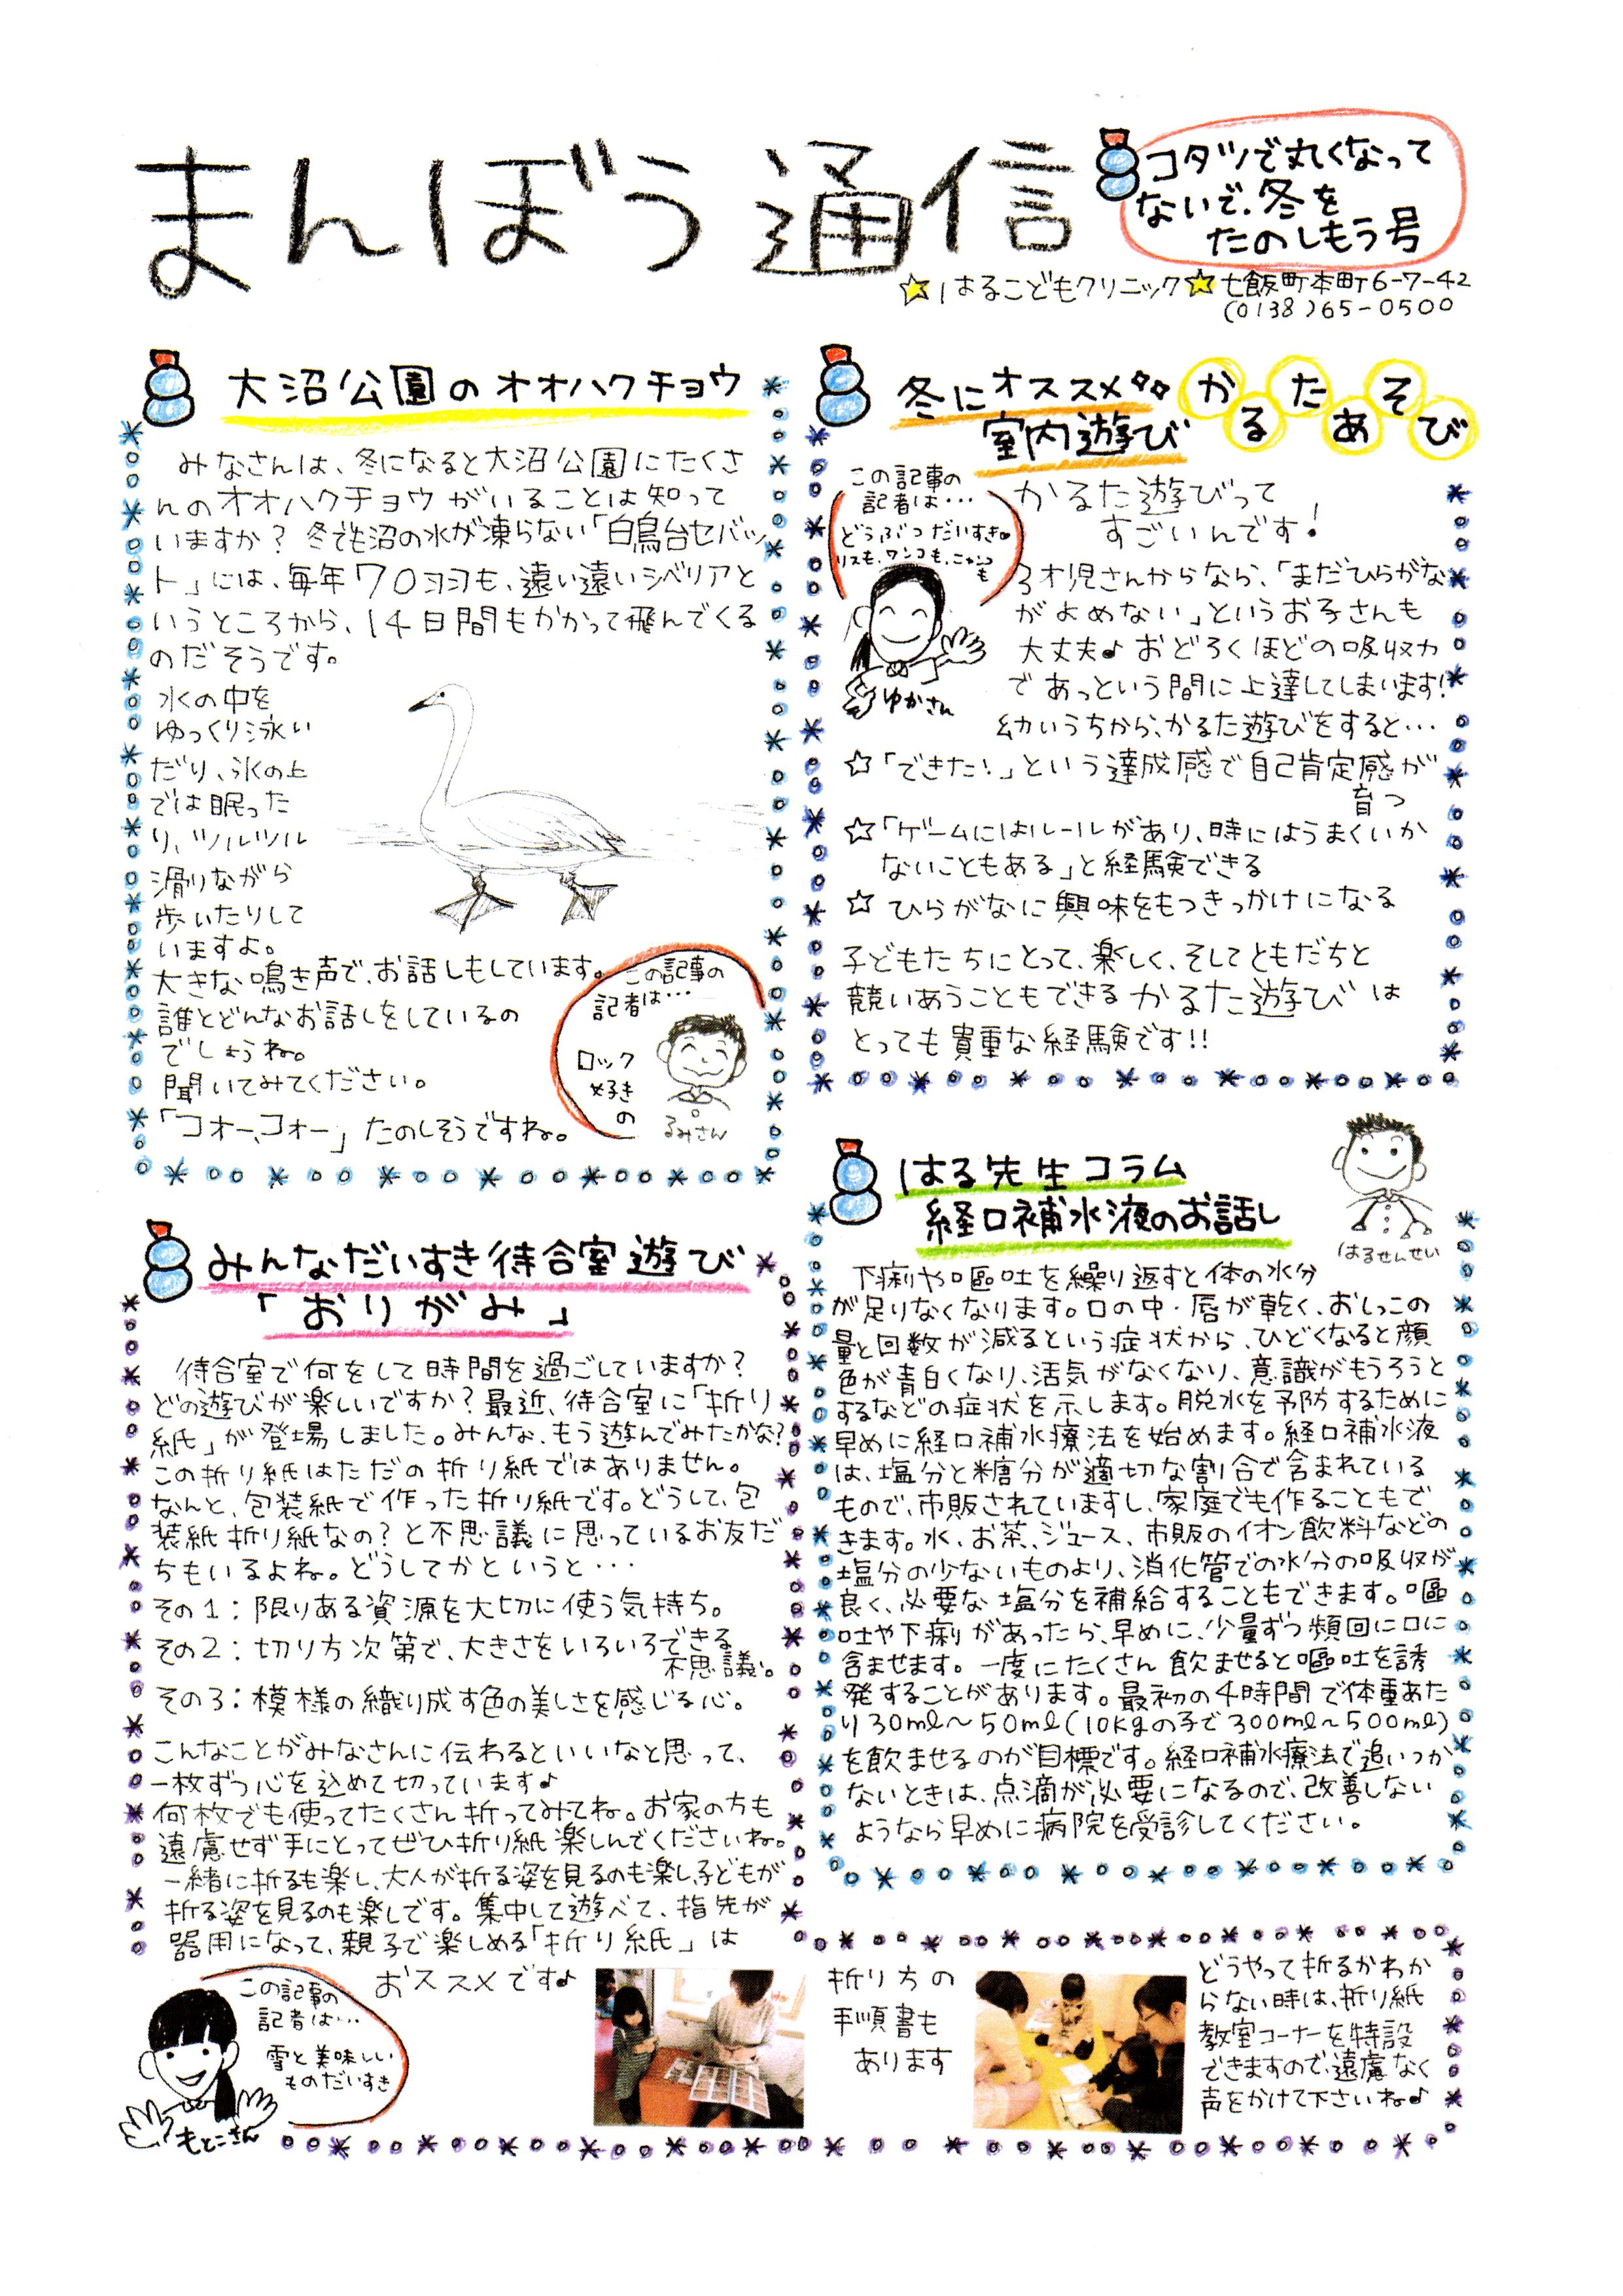 まんぼう通信
コタツで丸くなって
ないで、冬を
たのしもう号
☆はるこどもクリニック☆七飯町本町6-7-42
(0138)65-0500
大沼公園のオオハクチョウ
みなさんは、冬になると大沼公園にたくさ
んのオオハクチョウがいることは知って
いますか？冬でも沼の水が凍らない「白鳥台セバッ
ト」には、毎年70羽も、遠い遠いシベリアと
いうところから、14日間もかかって飛んでくる
のだそうです。
水の中を
ゆっくり泳い
だり、氷の上
では眠った
り、ツルツル
滑りながら
歩いたりして
いますよ。
大きな鳴き声で、お話しもしています。
誰とどんなお話しをしているの
でしょうね。
聞いてみてください。
「コォー、コォー」たのしそうですね。
この記事の
記者は…
ロック
好き
の
るみさん
冬にオススメ
室内遊び
かるたあそび
この記事の
記者は…
どうぶつだいすき
リスも、ワンコも、ニャンコ
も
ゆかさん
かるた遊びって
すごいんです！
3才児さんからなら、「まだひらがな
がよめない」というお子さんも
大丈夫♪おどろくほどの吸収力
であっという間に上達してしまいます！
幼いうちから、かるた遊びをすると…
☆「できた！」という達成感で自己肯定感が
育つ
☆「ゲームにはルールがあり、時にはうまくいか
ないこともある」と経験できる
☆ひらがなに興味をもつきっかけになる
子どもたちにとって、楽しく、そしてともだちと
競いあうこともできるかるた遊びは
とっても貴重な経験です!!
みんなだいすき待合室遊び
「おりがみ」
待合室で何をして時間を過ごしていますか？
どの遊びが楽しいですか？最近、待合室に「折り
紙」が登場しました。みんな、もう遊んでみたかな？
この折り紙はただの折り紙ではありません。
なんと、包装紙で作った折り紙です。どうして、包
装紙折り紙なの？と不思議に思っているお友だ
ちもいるよね。どうしてかというと…
その1：限りある資源を大切に使う気持ち。
その2：切り方次第で、大きさをいろいろできる
不思議。
その3：模様の織り成す色の美しさを感じる心。
こんなことがみなさんに伝わるといいなと思って、
一枚ずつ心を込めて切っています♪
何枚でも使ってたくさん折ってみてね。お家の方も
遠慮せず手にとってぜひ折り紙楽しんでくださいね。
一緒に折るも楽し、大人が折る姿を見るのも楽し、子どもが
折る姿を見るのも楽しです。集中して遊べて、指先が
器用になって、親子で楽しめる「折り紙」は
おススメです♪
この記事の
記者は…
雪と美味しい
ものだいすき
もとこさん
折り方の
手順書も
あります
どうやって折るかわか
らない時は、折り紙
教室コーナーを特設
できますので、遠慮なく
声をかけて下さいね♪
はる先生コラム
経口補水液のお話し
はるせんせい
下痢や嘔吐を繰り返すと体の水分
が足りなくなります。口の中・唇が乾く、おしっこの
量と回数が減るという症状から、ひどくなると顔
色が青白くなり、活気がなくなり、意識がもうろうと
するなどの症状を示します。脱水を予防するために
早めに経口補水療法を始めます。経口補水液
は、塩分と糖分が適切な割合で含まれている
もので、市販されていますし、家庭でも作ることもで
きます。水、お茶、ジュース、市販のイオン飲料などの
塩分の少ないものより、消化管での水分の吸収が
良く、必要な塩分を補給することもできます。嘔
吐や下痢があったら、早めに、少量ずつ頻回に口に
含ませます。一度にたくさん飲ませると嘔吐を誘
発することがあります。最初の4時間で体重あた
り30ml～50ml(10kgの子で300ml～500ml)
を飲ませるのが目標です。経口補水療法で追いつか
ないときは、点滴が必要になるので、改善しない
ようなら早めに病院を受診してください。